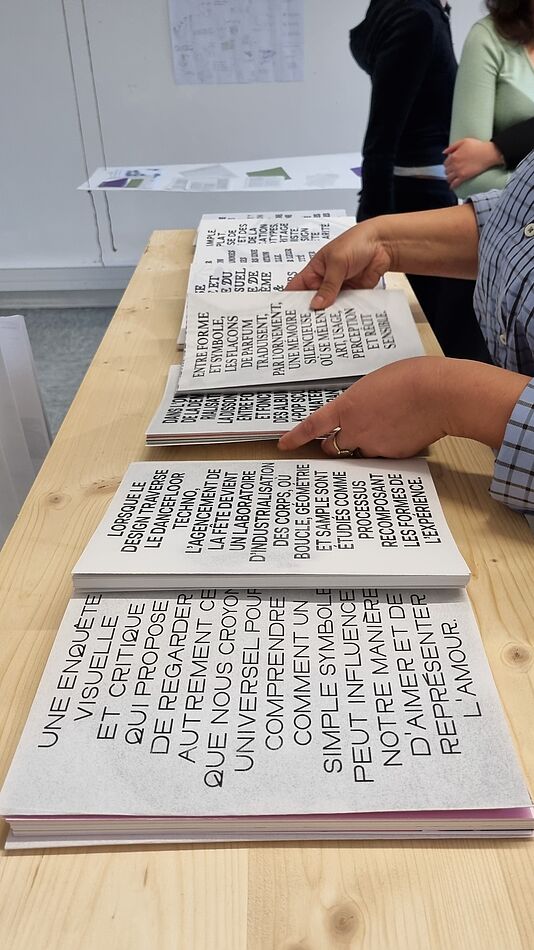 IMPLE
PLAT
SE DE
ET DES
DE LA
CATION
TYPES,
RITAGE
ISTE
SIGN
ARITÉ
ET
E DU
SUEL
E DE
ÈME
&
ENTRE FORME
ET SYMBOLE,
LES FLACONS
DE PARFUM
TRADUISENT,
PAR L'ORNEMENT,
UNE MÉMOIRE
SILENCIEUSE
OÙ SE MÊLENT
ART, USAGE,
PERCEPTION
ET RÉCIT
SENSIBLE.
DANS
ENTRE FO
ET FONCT
DES ALBUM
POP SON
LORSQUE LE
DESIGN TRAVERSE
LE DANCEFLOOR
TECHNO,
L'AGENCEMENT DE
LA FÊTE DEVIENT
UN LABORATOIRE
D'INDUSTRIALISATION
DES CORPS, OU
BOUCLE, GÉOMÉTRIE
ET SAMPLE SONT
ÉTUDIÉS COMME
PROCESSUS
RECOMPOSANT
LES FORMES DE
L'EXPÉRIENCE.
UNE ENQUÊTE
VISUELLE
ET CRITIQUE
QUI PROPOSE
DE REGARDER
AUTREMENT CE
QUE NOUS CROYON
UNIVERSEL POUR
COMPRENDRE
COMMENT UN
SIMPLE SYMBOLE
PEUT INFLUENCE
NOTRE MANIÈRE
D'AIMER ET DE
REPRÉSENTER
L'AMOUR.